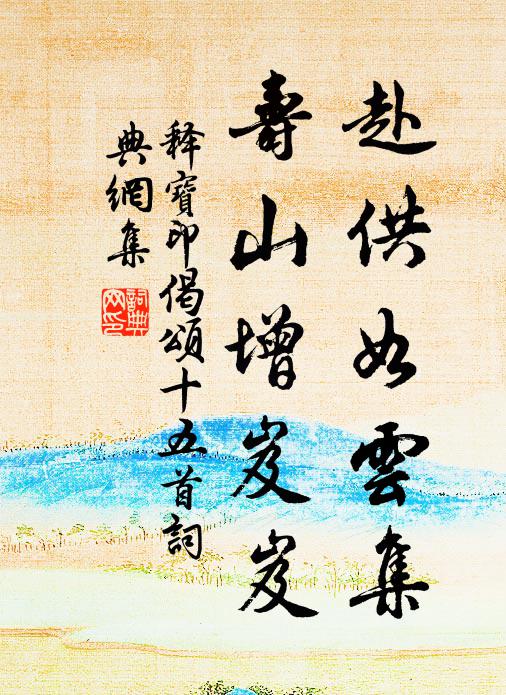 赴供如雲集
壽山增岌岌
释寶印偈頌十五首詞
典網集
詞典网印